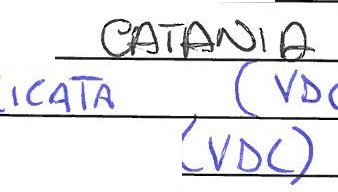 CATANIA
ICATA (VDC
(VDC)